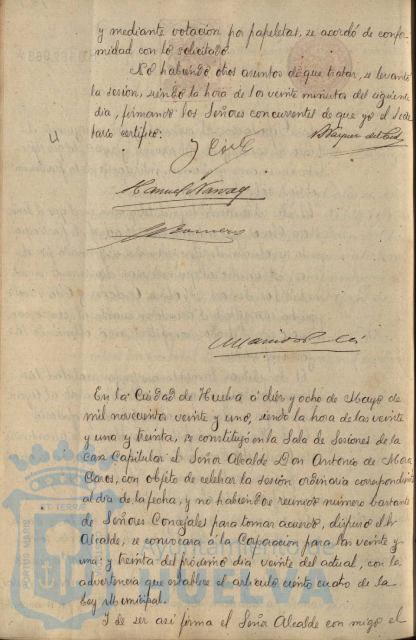 y mediante votación por papeletas, se acordó de confor-
midad con lo solicitado.
No habiendo otros asuntos de que tratar, se levantó
la sesión, siendo la hora de los veinte minutos del siguiente
día, firmando los Señores concurrentes de que yo el Secre-
tario certifico.
Manuel Narvaez
J Romero
En la Ciudad de Huelva á diéz y ocho de Mayo de
mil novecientos veinte y uno, siendo la hora de las veinte
y una y treinta, se constituyó en la Sala de Sesiones de la
Casa Capitular el Señor Alcalde Don Antonio de Mora
Claros, con objeto de celebrar la sesión ordinaria correspondiente
al día de la fecha, y no habiendose reunido número bastante
de Señores Concejales para tomar acuerdo, dispuso el Sr
Alcalde, se convocara á la Corporación para las veinte y
una y treinta del próximo día veinte del actual, con la
advertencia que establece el artículo ciento cuatro de la
Ley Municipal.
Y de ser asi firma el Señor Alcalde con migo el
PORTUS MARIS
ET TERRÆ
Ayuntamiento de
HUELVA